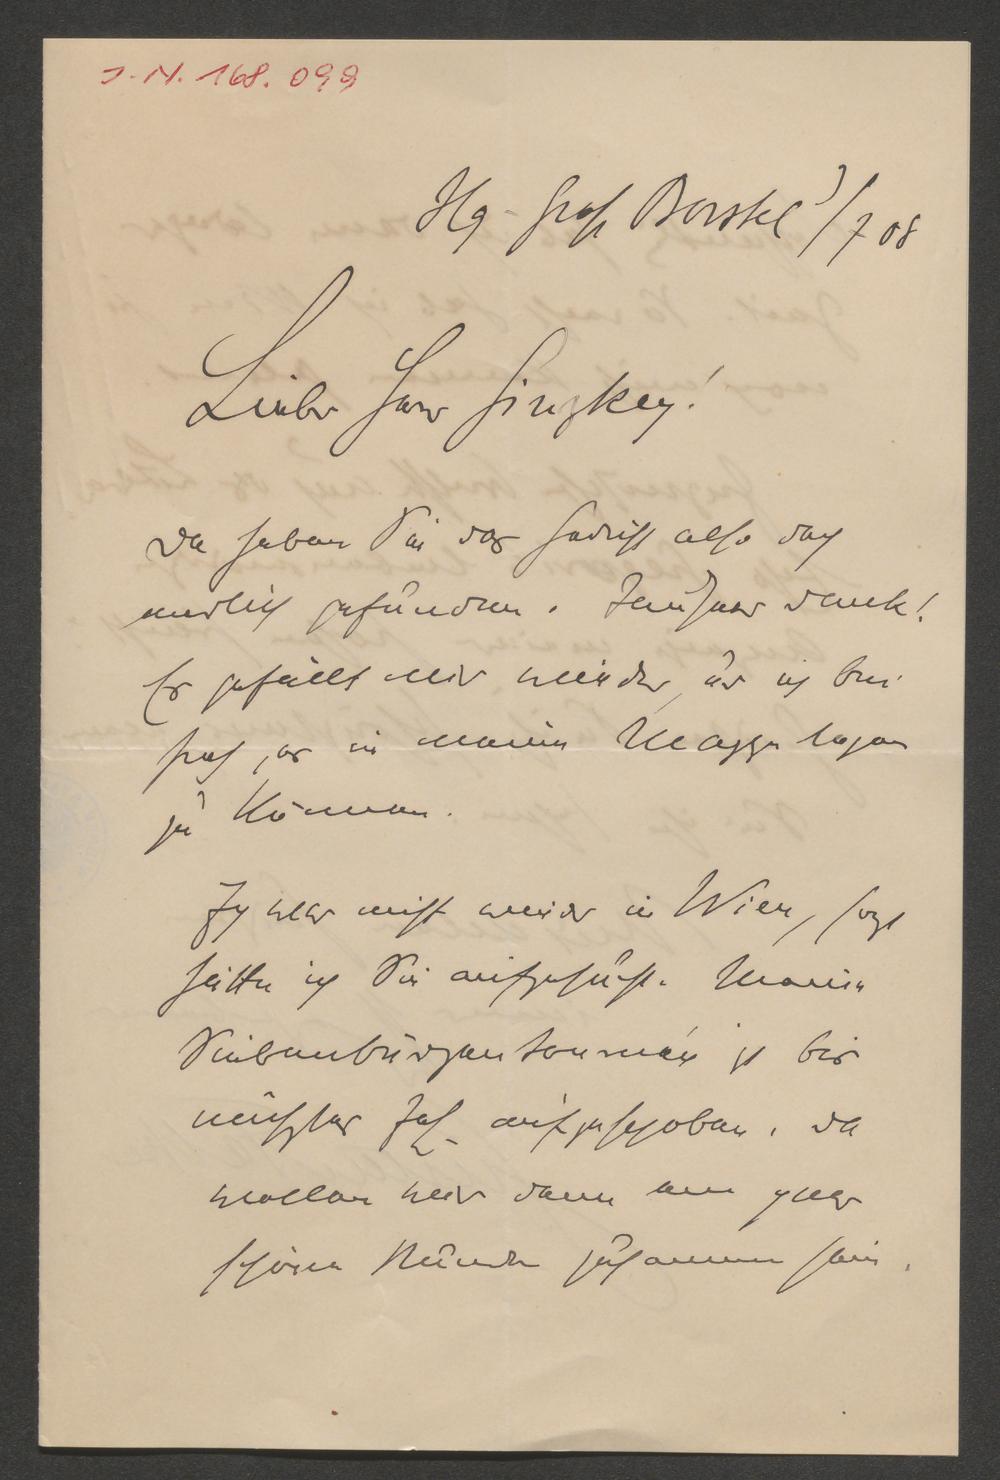 I. N. 168.099
Hbg-Groß Borstel 3/7 08
Lieber Herr Ginzkey!
Da haben Sie das Gedicht also doch
endlich gefunden. Tausend Dank!
Es gefällt mir wieder, u ich bin
froh, es in meine Mappe legen
zu können.
Ich war nicht wieder in Wien, sonst
hätte ich Sie aufgesucht. Meine
Siebenbürgentournée ist bis
nächstes Jahr aufgeschoben. Da
wollen wir dann ein paar
schöne Stunden zusammen sein.